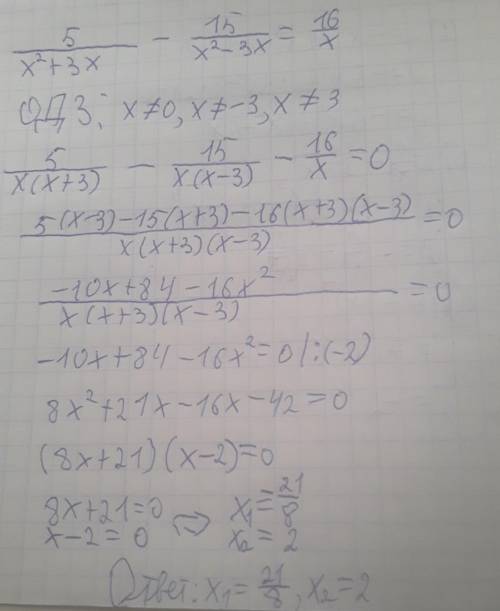 5/(x²+3x) − 15/(x²−3x) = 16/x
ОДЗ: x≠0, x≠-3, x≠3
5/(x(x+3)) − 15/(x(x−3)) − 16/x = 0
(5(x-3)-15(x+3)-16(x+3)(x-3))/(x(x+3)(x-3)) = 0
(-10x+84-16x²)/(x(x+3)(x-3)) = 0
-10x+84-16x²=0 |:(-2)
8x²+21x-16x-42=0
(8x+21)(x-2)=0
8x+21=0 ⇒ x₁=21/8
x-2=0 x₂=2
Ответ: x₁=21/8, x₂=2